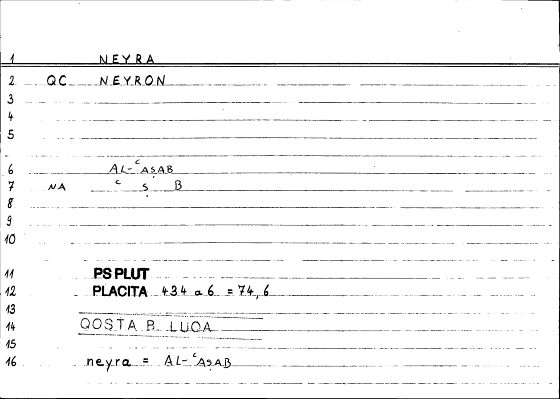 1 NEYRA
2 QC NEYRON
3
4
5
6 AL-ʿAṢAB
7 NA ʿ Ṣ B
8
9
10
11 PS PLUT
12 PLACITA 434 a 6 = 74,6
13
14 QOSTA B. LUQA
15
16 neyra = AL-ʿAṢAB